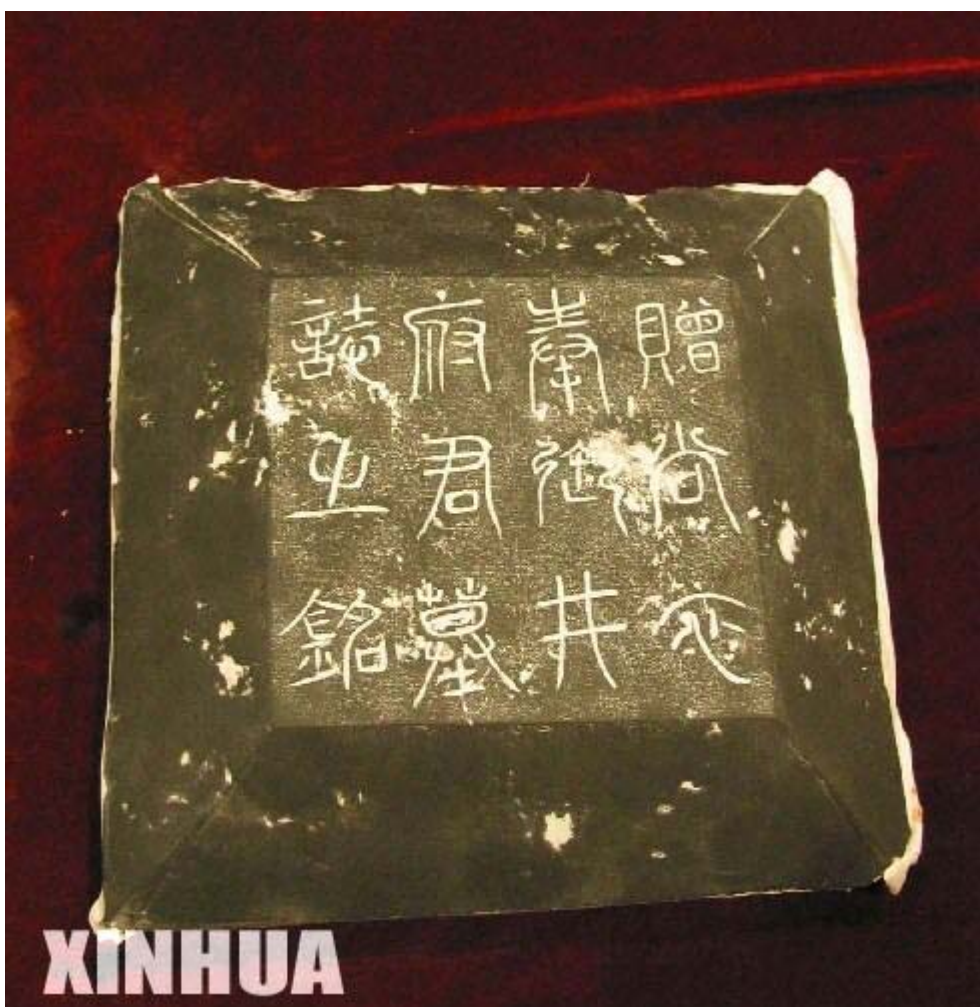 贈尚衣
奉御井
府君墓
誌之銘
XINHUA